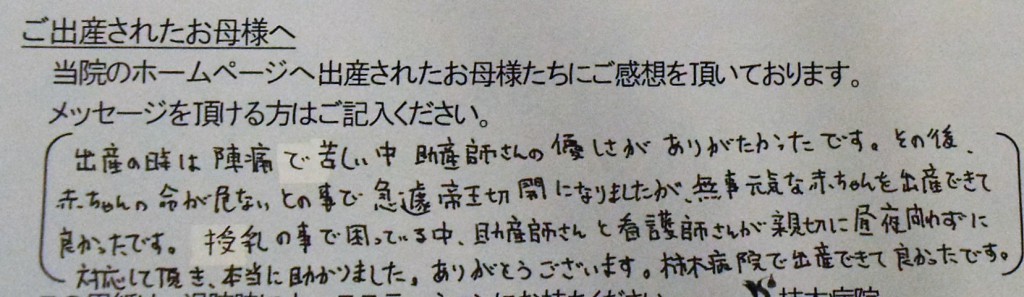 ご出産されたお母様へ
当院のホームページへ出産されたお母様たちにご感想を頂いております。
メッセージを頂ける方はご記入ください。
出産の時は陣痛で苦しい中助産師さんの優しさがありがたかったです。その後、
赤ちゃんの命が危ないとの事で急遽帝王切開になりましたが、無事元気な赤ちゃんを出産できて
良かったです。授乳の事で困っている中、助産師さんと看護師さんが親切に昼夜問わずに
対応して頂き、本当に助かりました。ありがとうございます。柿木病院で出産できて良かったです。